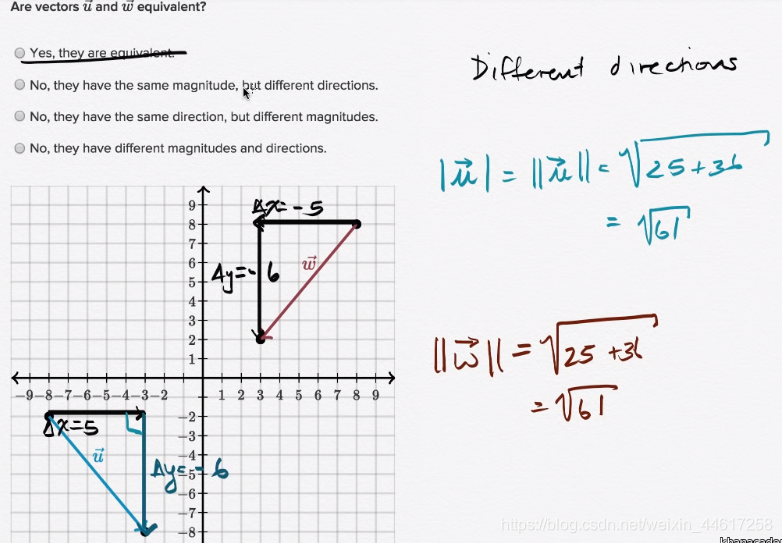 Are vectors u⃗ and w⃗ equivalent?
Yes, they are equivalent.
No, they have the same magnitude, but different directions.
No, they have the same direction, but different magnitudes.
No, they have different magnitudes and directions.
Different directions
|u⃗| = ||u⃗|| = √25+36
= √61
||w⃗|| = √25+36
= √61
Δx=-5
Δy=-6
w⃗
9
8
7
6
5
4
3
2
1
-9 -8 -7 -6 -5 -4 -3 -2
1 2 3 4 5 6 7 8 9
Δx=5
u⃗
Δy=-6
-2
-3
-4
-5
-6
-7
-8
https://blog.csdn.net/weixin_44617258